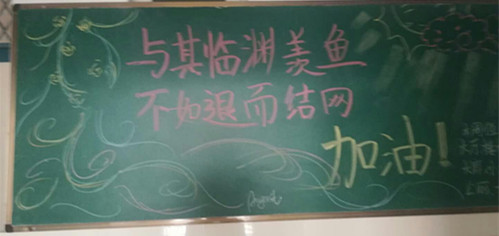 与其临渊羡鱼
不如退而结网
加油!